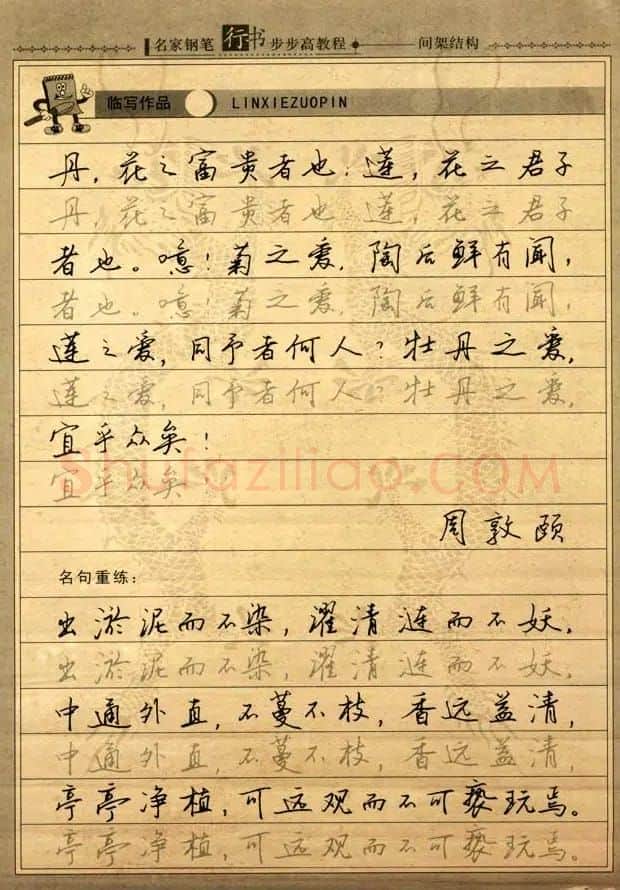 名家钢笔行书步步高教程 间架结构
临写作品 LINXIEZUOPIN
丹，花之富贵者也；莲，花之君子
丹，花之富贵者也 莲，花之君子
者也。噫！菊之爱，陶后鲜有闻，
者也。噫！菊之爱，陶后鲜有闻，
莲之爱，同予者何人？牡丹之爱，
莲之爱，同予者何人？牡丹之爱，
宜乎众矣！
宜乎众矣
shufaziliao.COM
周敦颐
名句重练：
出淤泥而不染，濯清涟而不妖，
出淤泥而不染，濯清涟而不妖，
中通外直，不蔓不枝，香远益清，
中通外直，不蔓不枝，香远益清，
亭亭净植，可远观而不可亵玩焉。
亭亭净植，可远观而不可亵玩焉。